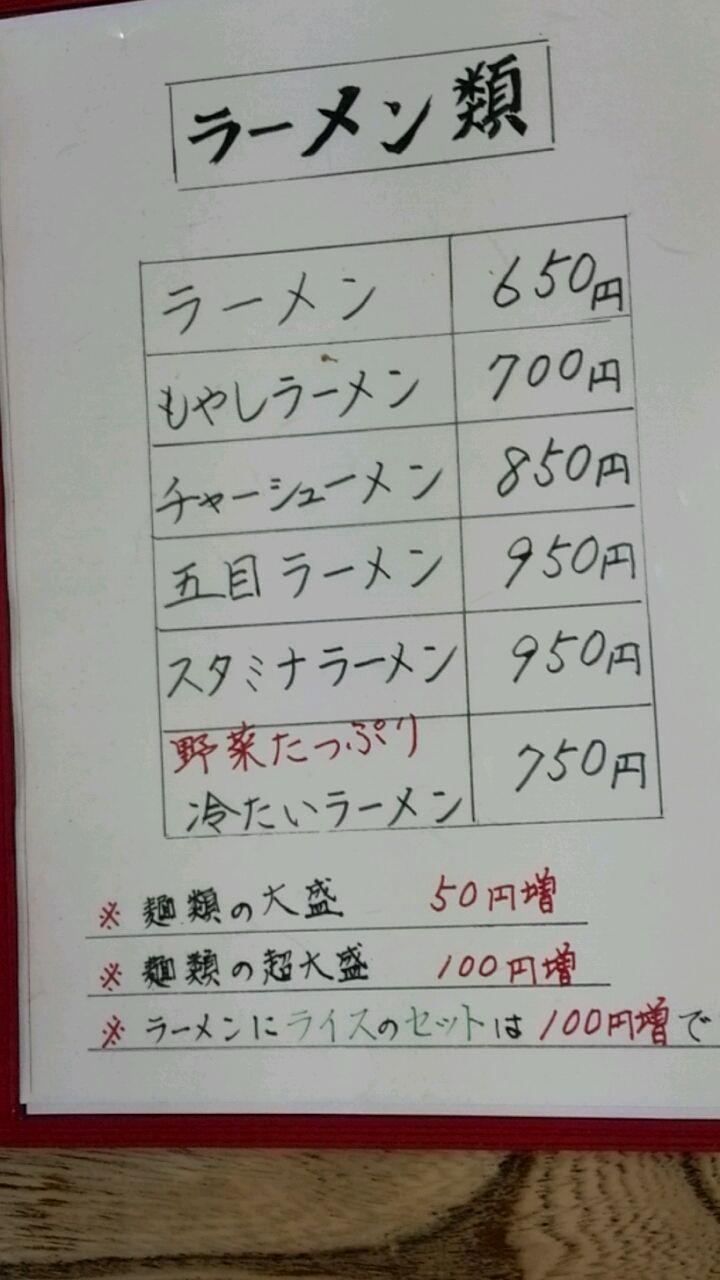 ラーメン類
ラーメン 650円
もやしラーメン 700円
チャーシューメン 850円
五目ラーメン 950円
スタミナラーメン 950円
野菜たっぷり
冷たいラーメン 750円
※ 麺類の大盛 50円増
※ 麺類の超大盛 100円増
※ ラーメンにライスのセットは100円増で